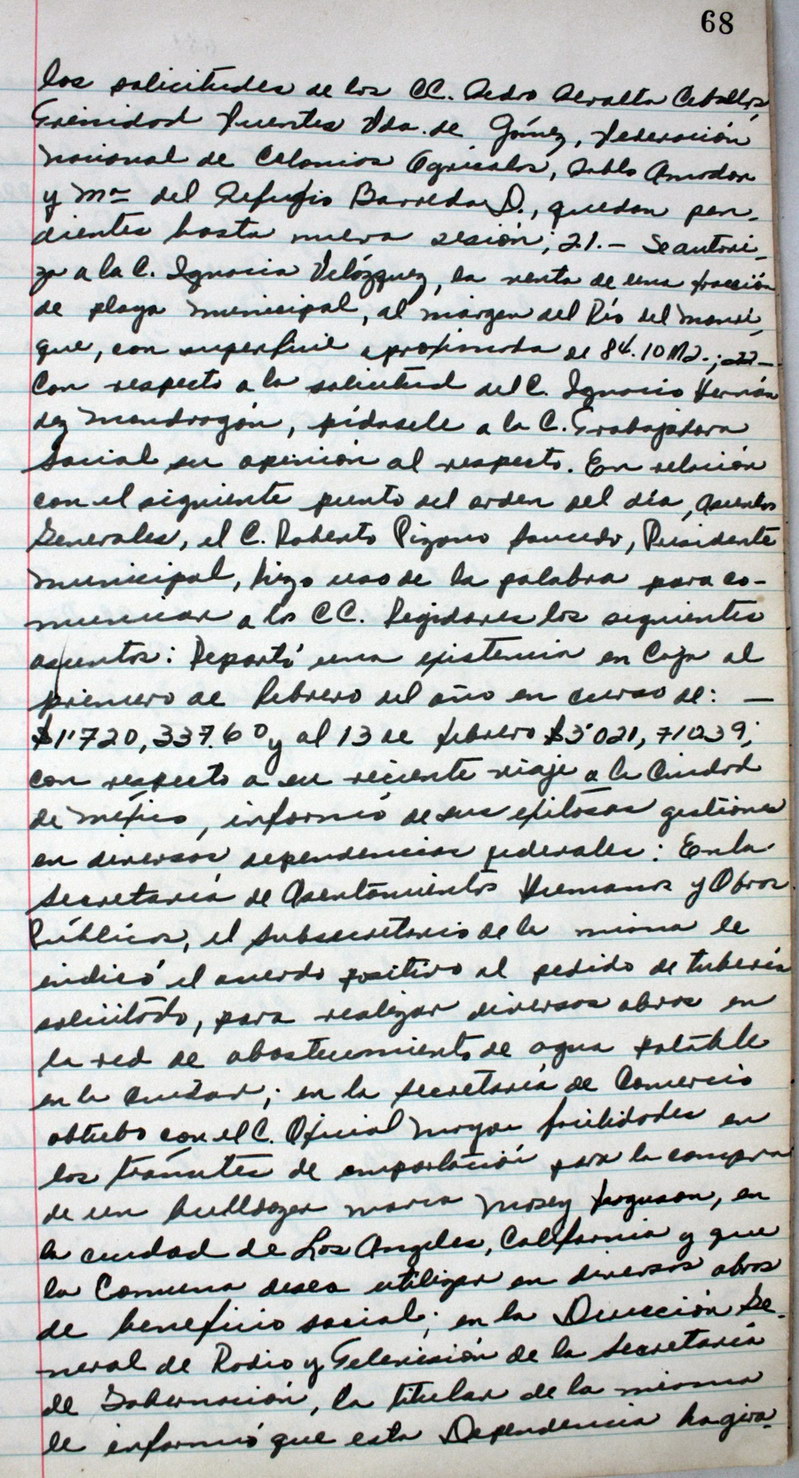 68
los solicitudes de los CC. Pedro Peralta Ceballos,
Trinidad Fuentes Vda. de Gómez, Federación
Nacional de Colonias Agrícolas, Pablo Amador
y Mª del Refugio Barreda D., quedan pen-
dientes hasta nueva sesión; 21.- Se autori-
za a la C. Ignacia Velázquez, la venta de una fracción
de playa municipal, al margen del Río del Manri-
que, con superficie aproximada de 84.10 M2.; 22-
Con respecto a la solicitud del C. Ignacio Hernán
dez Mondragón, pídasele a la C. Trabajadora
Social su opinión al respecto. En relación
con el siguiente punto del orden del día, Asuntos
Generales, el C. Roberto Pizano Saucedo, Presidente
Municipal, hizo uso de la palabra para co-
municar a los CC. Regidores los siguientes
asuntos: Reportó una existencia en Caja al
primero de febrero del año en curso de: —
$1'720,337.60 y al 13 de febrero $3'021,710.39;
con respecto a su reciente viaje a la Ciudad
de México, informó de sus exitosas gestiones
en diversas dependencias federales: En la
Secretaría de Asentamientos Humanos y Obras
Públicas, el Subsecretario de la misma le
indicó el acuerdo positivo al pedido de tubería
solicitado, para realizar diversas obras en
la red de abastecimiento de agua potable
en la ciudad; en la Secretaría de Comercio
obtubo con el C. Oficial Mayor facilidades en
los trámites de importación para la compra
de un bulldozer marca Masey Ferguson, en
la ciudad de Los Angeles, California y que
la Comuna desea utilizar en diversas obras
de beneficio social; en la Dirección Ge-
neral de Radio y Televisión de la Secretaría
de Gobernación, la titular de la misma
le informó que esta Dependencia ha gira-